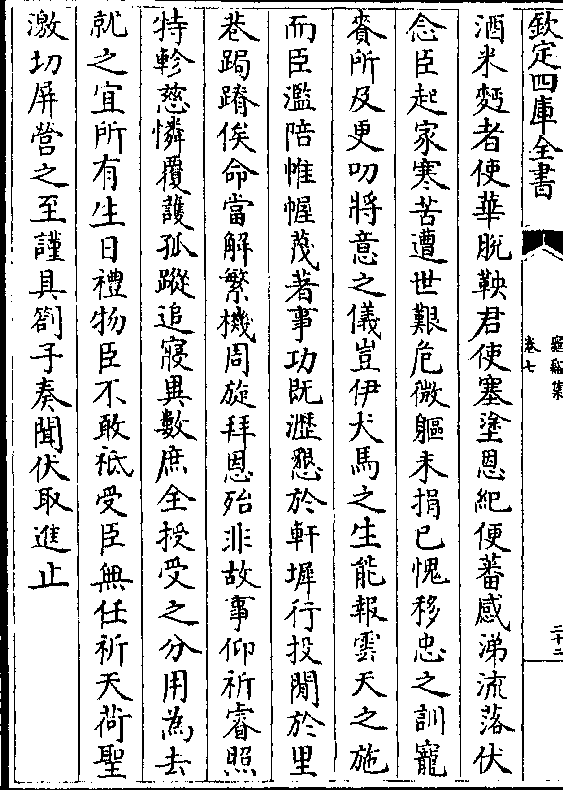 欽定四庫全書
龜谿集
卷七
二十二
酒米麪者使華脫鞅君使塞塗恩紀便蕃感涕流落伏
念臣起家寒苦遭世艱危微軀未捐已愧移忠之訓寵
賚所及更叨將意之儀豈伊犬馬之生能報雲天之施
而臣濫陪帷幄蔑著事功既瀝懇於軒墀行投閒於里
巷跼蹐俟命當解繁機周旋拜恩殆非故事仰祈睿照
特軫慈憐覆護孤蹤追寢異數庶全授受之分用為去
就之宜所有生日禮物臣不敢祗受臣無任祈天荷聖
激切屏營之至謹具劄子奏聞伏取進止